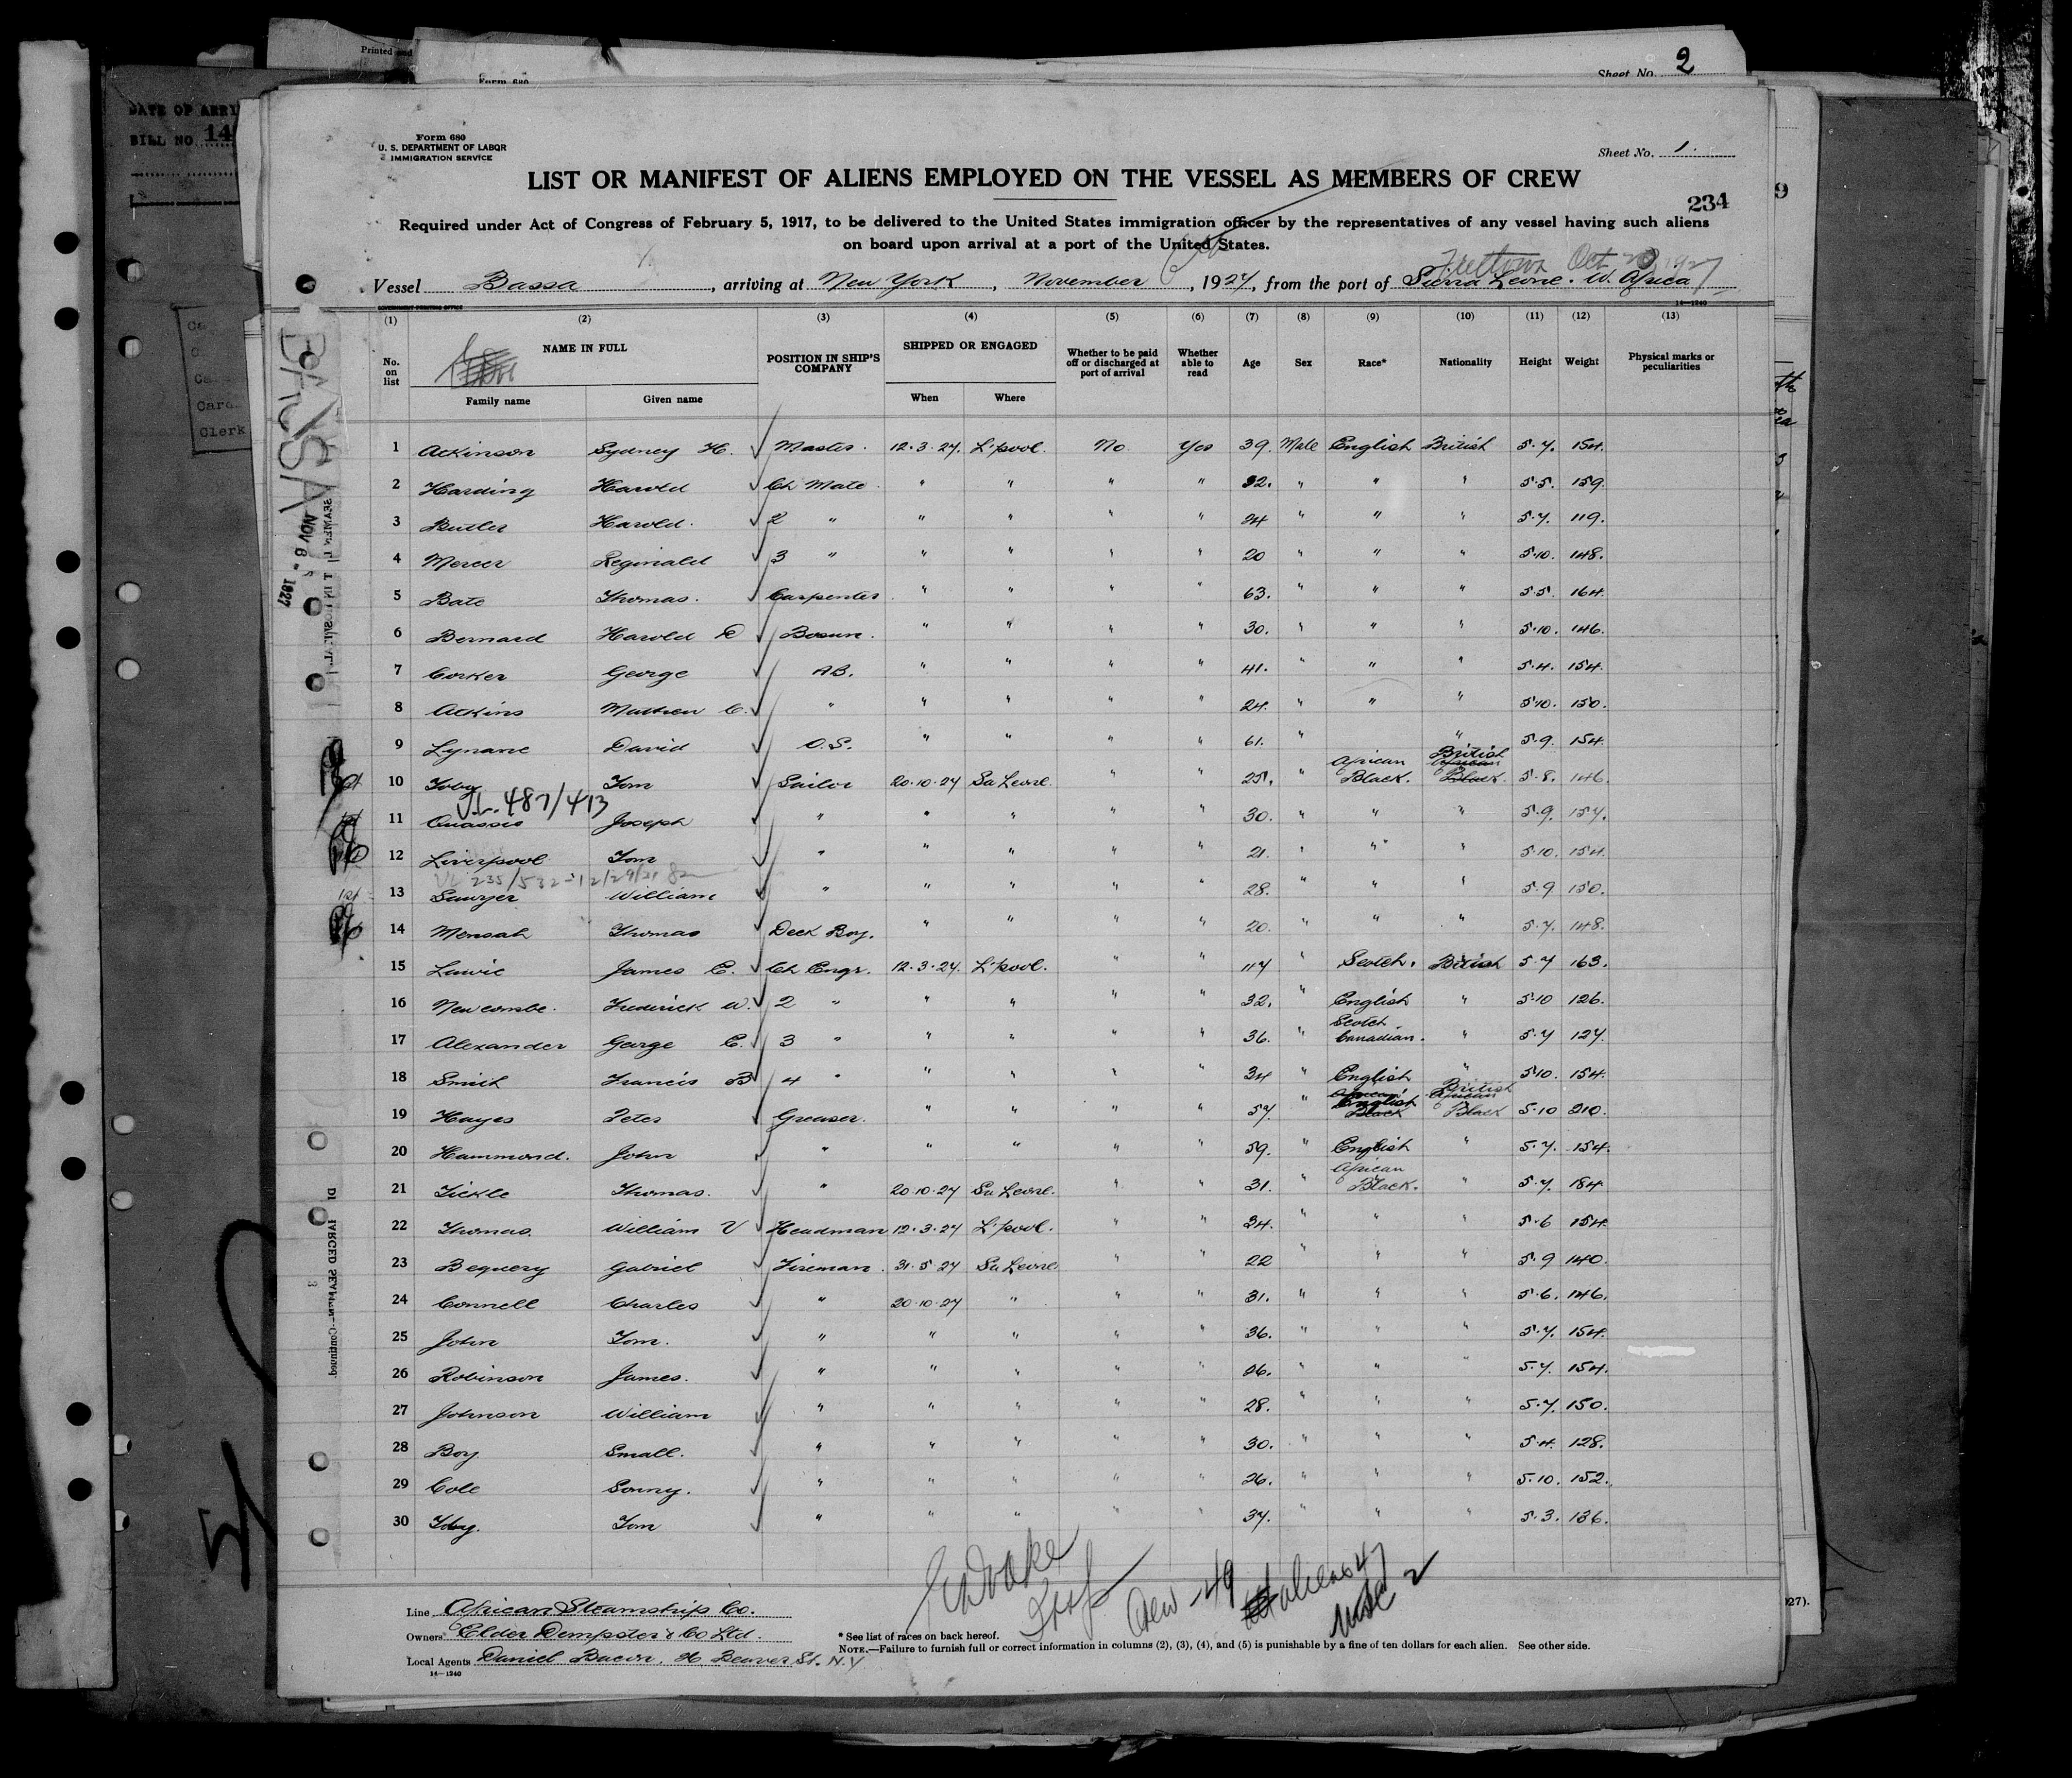 Printed and
Form 680
Sheet No. 2
DATE OF ARRI
BILL NO. 14
Form 680
U. S. DEPARTMENT OF LABOR
IMMIGRATION SERVICE
Sheet No. 1.
LIST OR MANIFEST OF ALIENS EMPLOYED ON THE VESSEL AS MEMBERS OF CREW
234
Required under Act of Congress of February 5, 1917, to be delivered to the United States immigration officer by the representatives of any vessel having such aliens
on board upon arrival at a port of the United States.
Freetown Oct 20 1927
Vessel Bassa, arriving at New York, November, 1927, from the port of Sierra Leone. W. Africa
14—1240
GOVERNMENT PRINTING OFFICE
(1) (2) (3) (4) (5) (6) (7) (8) (9) (10) (11) (12) (13)
No. on list NAME IN FULL POSITION IN SHIP'S COMPANY SHIPPED OR ENGAGED Whether to be paid off or discharged at port of arrival Whether able to read Age Sex Race* Nationality Height Weight Physical marks or peculiarities
Family name Given name When Where
1 Atkinson Sydney H. Master. 12.3.27. L'pool. No Yes 39. Male English British 5.7. 154.
2 Harding Harold Ch Mate " " " " 32. " " " 5.5. 159.
3 Butler Harold. 2 " " " " " 24 " " " 5.7. 119.
4 Mercer Reginald 3 " " " " " 20 " " " 5.10. 148.
5 Bate Thomas. Carpenter " " " " 63. " " " 5.5. 164.
6 Bernard Harold D Bosun. " " " " 30. " " " 5.10. 146.
7 Corker George AB. " " " " 41. " " " 5.4. 154.
8 Atkins Mathew C. " " " " " 24. " " " 5.10. 150.
9 Lynane David O.S. " " " " 61. " " 5.9. 154.
10 Toby Tom Sailor 20.10.27 Sa Leone. " " 25. " African Black. British African Black. 5.8. 146.
V.L. 487/413
11 Quassie Joseph " " " " " 30. " " " 5.9. 154.
12 Liverpool Tom " " " " " 21. " " " 5.10. 154.
235/532
13 Sawyer William " " " " " 28. " " " 5.9 150.
14 Mensah Thomas Deck Boy. " " " " 20. " " " 5.7. 148.
15 Lawie James E. Ch Engr. 12.3.27. L'pool. " " 47 " Scotch. British 5.7 163.
16 Newcombe. Frederick W. 2 " " " " " 32. " English " 5.10 126.
17 Alexander George E. 3 " " " " " 36. " Scotch Canadian. " 5.7 127.
18 Smith Francis B 4 " " " " " 34 " English " 5.10. 154.
19 Hayes Peter Greaser. " " " " 57. " African English Black British African Black 5.10 210.
20 Hammond. John " " " " " 59. " English " 5.7. 154.
21 Tickle Thomas. " 20.10.27 Sa Leone. " " 31. " African Black. " 5.7. 184
22 Thomas. William V Headman 12.3.27 L'pool. " " 34. " " " 5.6 154
23 Bequery Gabriel Fireman. 31.5.27 Sa Leone " " 22 " " " 5.9 140.
24 Connell Charles " 20.10.27 " " " 31. " " " 5.6. 146.
25 John Tom. " " " " " 36. " " " 5.7. 154.
26 Robinson James. " " " " " 26. " " " 5.7. 154.
27 Johnson William " " " " " 28. " " " 5.7. 150.
28 Boy. Small. " " " " " 30. " " " 5.4. 128.
29 Cole Sonny. " " " " " 26. " " " 5.10. 152.
30 Toby. Tom " " " " " 37. " " " 5.3. 136.
BASSA
NOV 6 - 1927
Crew - 49 aliens 47
USC 2
Line African Steamship Co.
Owners Elder Dempster & Co Ltd.
Local Agents Daniel Bacon, 26 Beaver St. N.Y
14—1240
* See list of races on back hereof.
NOTE.—Failure to furnish full or correct information in columns (2), (3), (4), and (5) is punishable by a fine of ten dollars for each alien. See other side.